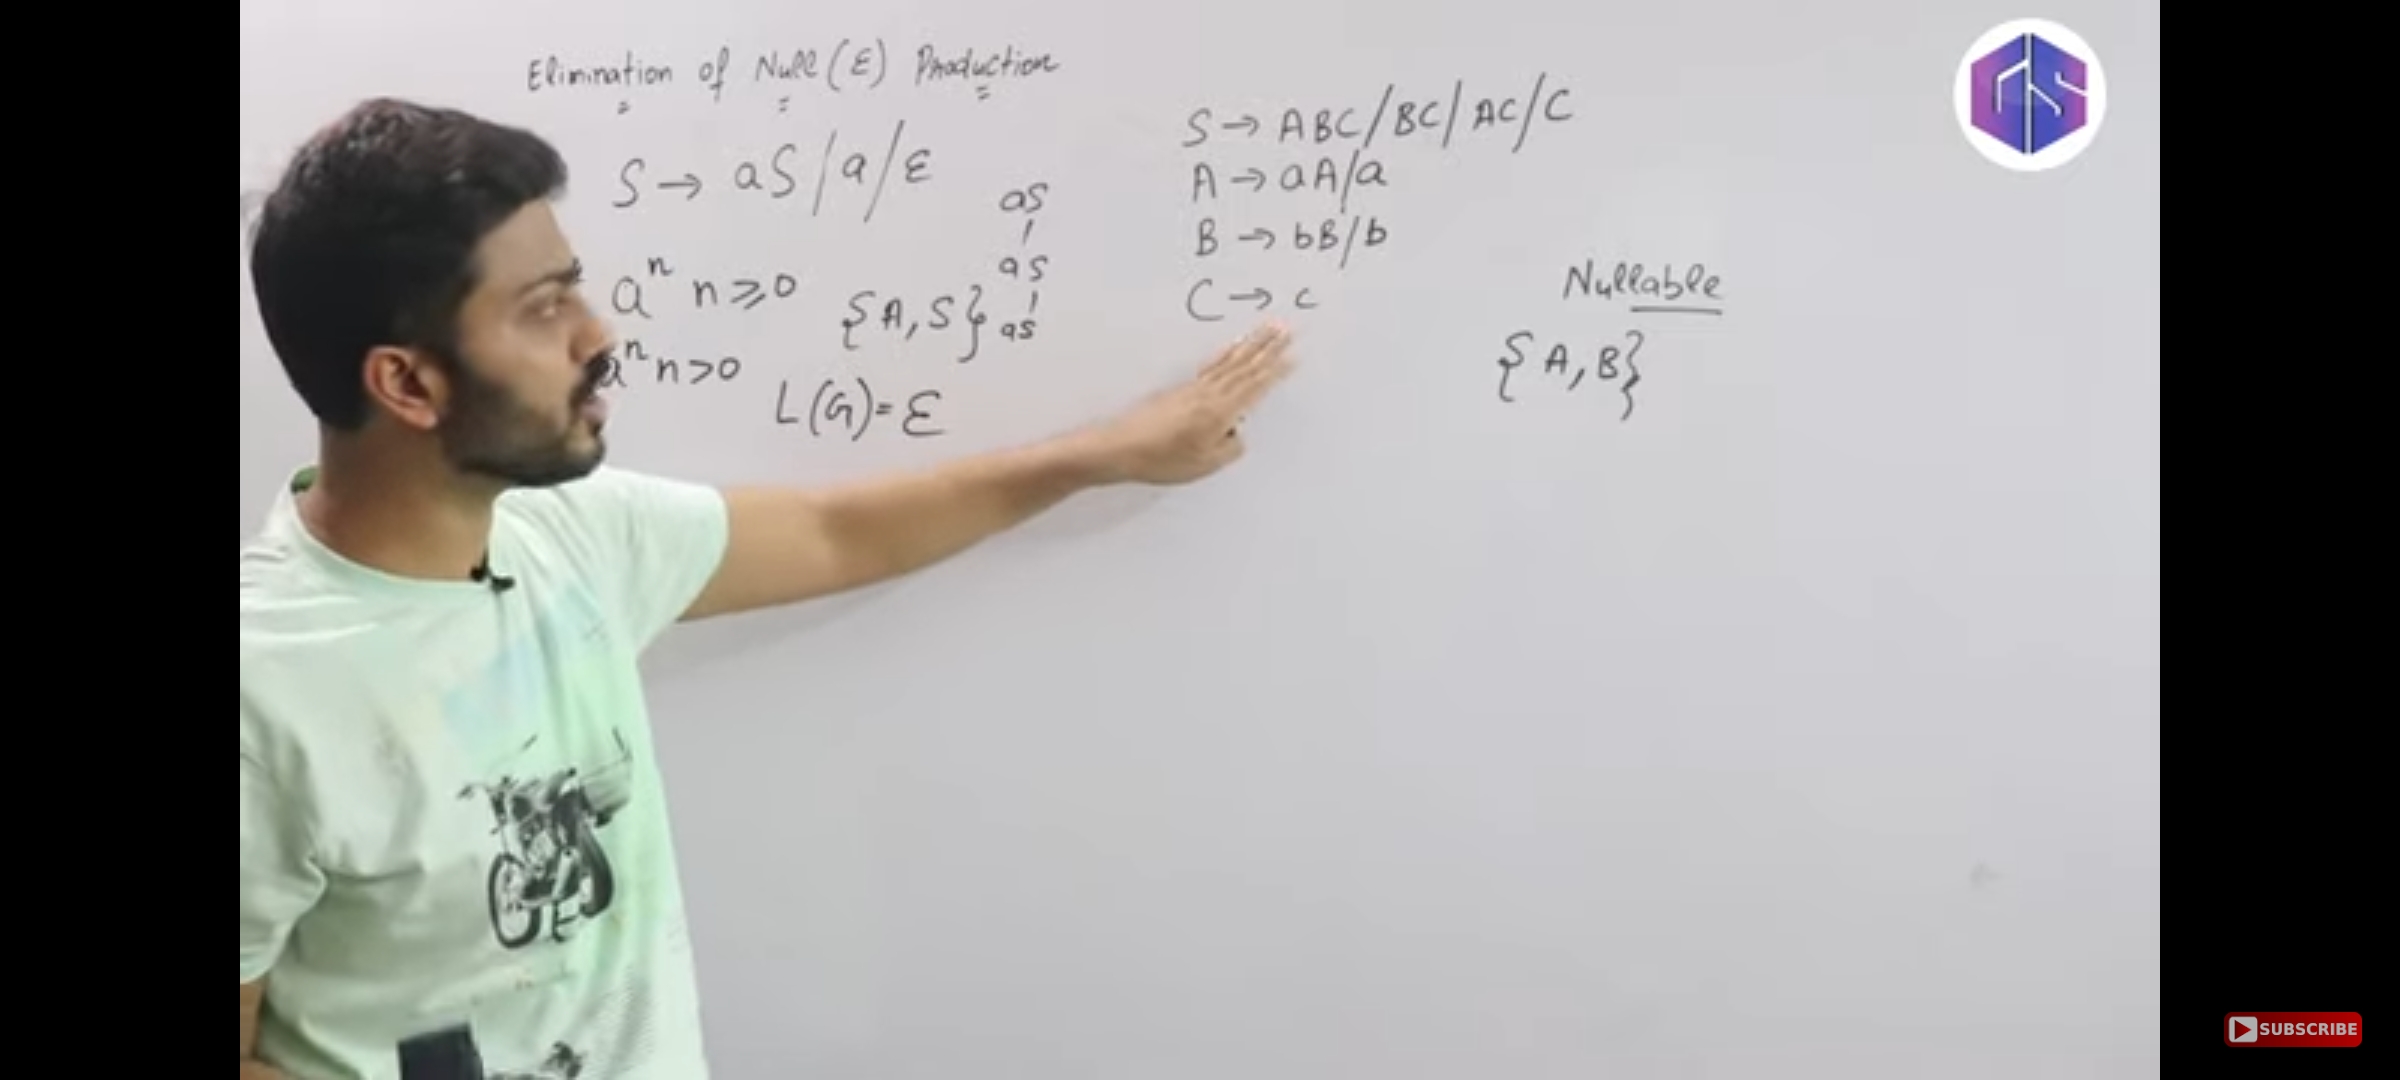 Elimination of Null (ε) Production
S → aS / a / ε
aⁿ n ⩾ 0
{A, S}
aⁿ n > 0
L(G) = ε
aS
aS
aS
S → ABC / BC / AC / C
A → aA / a
B → bB / b
C → c
Nullable
{A, B}
GS
SUBSCRIBE